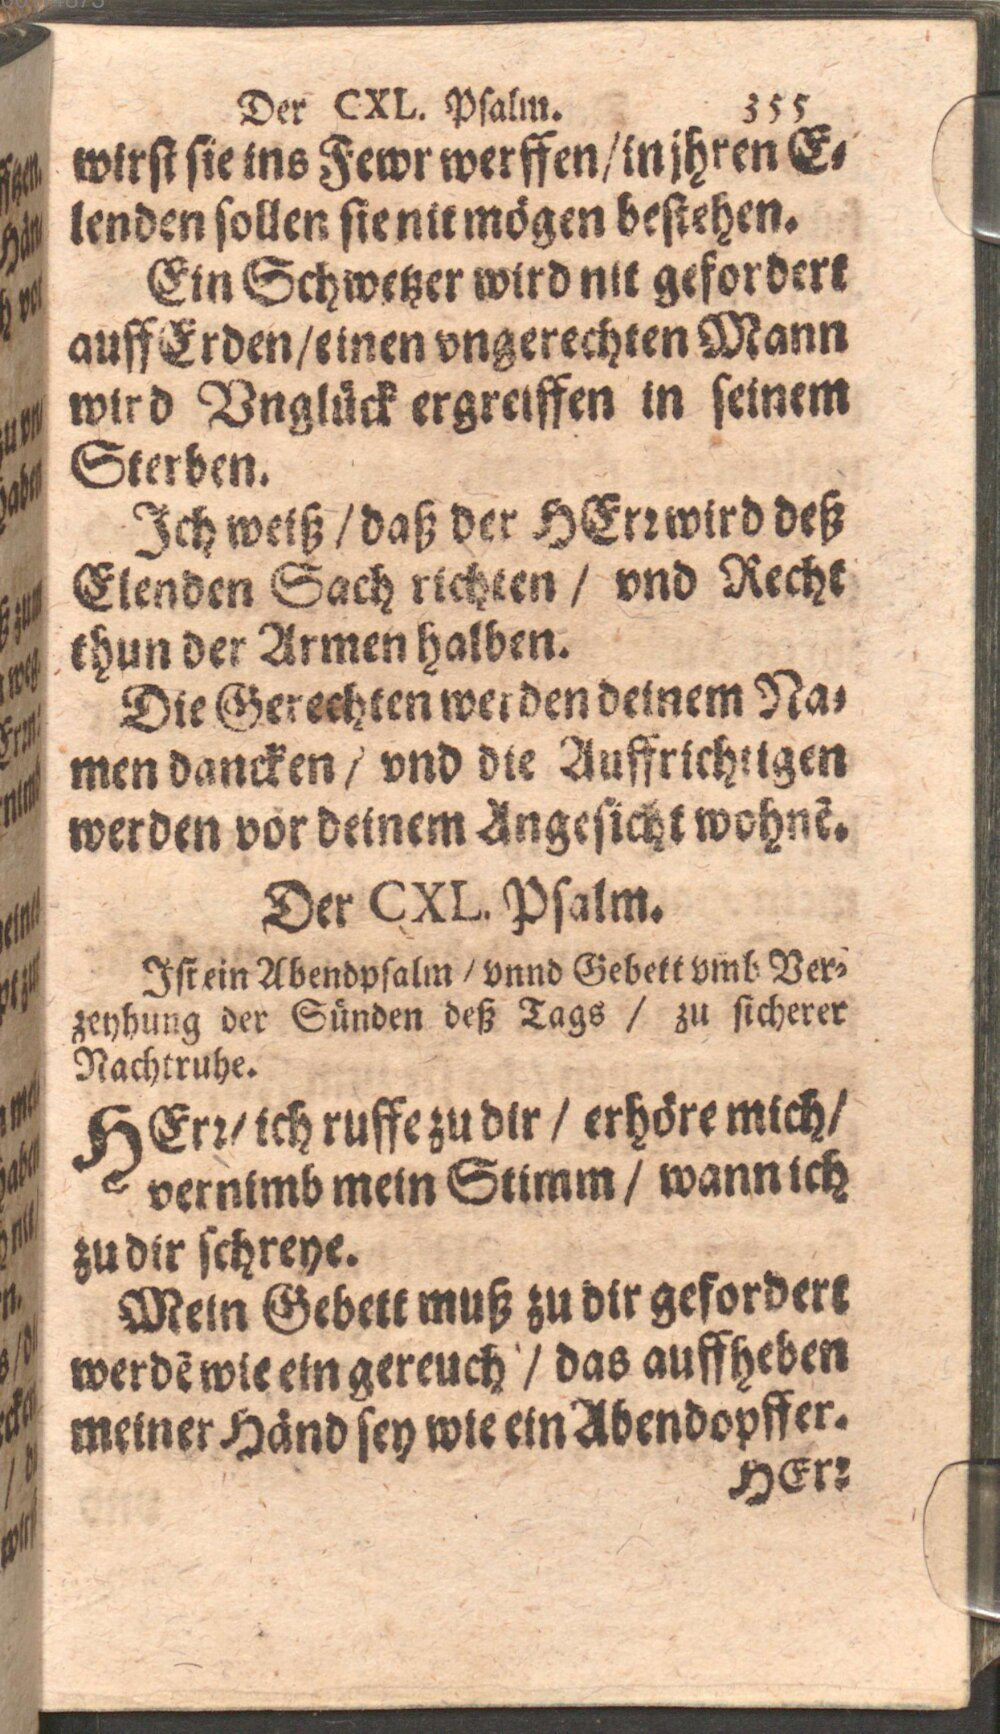 Der CXL. Psalm. 355
wirst sie ins Fewr werffen/in jhren E-
lenden sollen sie nit mögen bestehen.
Ein Schwetzer wird nit gefordert
auff Erden/einen vngerechten Mann
wird Vnglück ergreiffen in seinem
Sterben.
Ich weiß / daß der HErr wird deß
Elenden Sach richten / vnd Recht
thun der Armen halben.
Die Gerechten werden deinem Na-
men dancken / vnd die Auffrichtigen
werden vor deinem Angesicht wohnē.
Der CXL. Psalm.
Ist ein Abendpsalm / vnnd Gebett vmb Ver-
zeyhung der Sünden deß Tags / zu sicherer
Nachtruhe.
HErr/ ich ruffe zu dir / erhöre mich/
vernimb mein Stimm / wann ich
zu dir schreye.
Mein Gebett muß zu dir gefordert
werdē wie ein gereuch / das auffheben
meiner Händ sey wie ein Abendopffer.
HErr